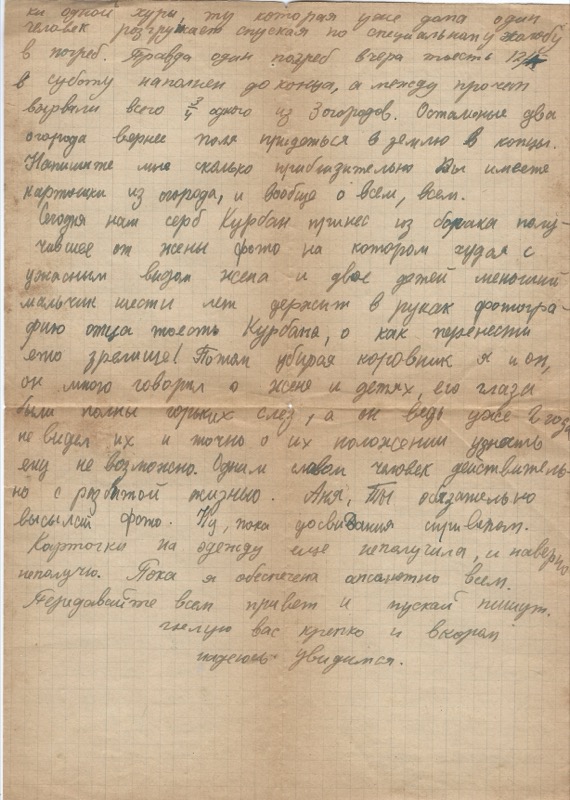 ки одной хуры, ту которая уже дала один
человек разгружает спуская по специальному жолобу
в погреб. Правда один погреб вчера тоесть
в субботу наполнен до конца, а между прочем
вырвали всего 3/4 одного из 3 огородов. Остальные два
огорода вернее поля придеться в землю в копцы.
Напишите мне сколько приблизительно Вы имеете
картошки из огорода, и вообще о всем, всем.
Сегодня нам серб Курбан принес из барака полу-
чившее от жены фото на котором худая с
ужасним видом жена и двое детей меньший
мальчик шести лет держит в руках фотогра-
фию отца тоесть Курбана, о как перенести
ето зрелище! Потом убирая коровник я и он,
он много говорил о жене и детях, его глаза
были полны горьких слез, а он ведь уже 2 года
не видел их и точно о их положении узнать
ему не возможно. Одним словом человек действитель-
но с разбитой жизнью. Аня, ты обязательно
высылай фото. Ну, пока досвидания с приветом.
Карточки на одежду еще неполучила, и наверно
неполучю. Пока я обеспечена апсолютно всем.
Передавайте всем привет и пускай пишут.
Целую вас крепко и вскором
надеюсь увидимся.